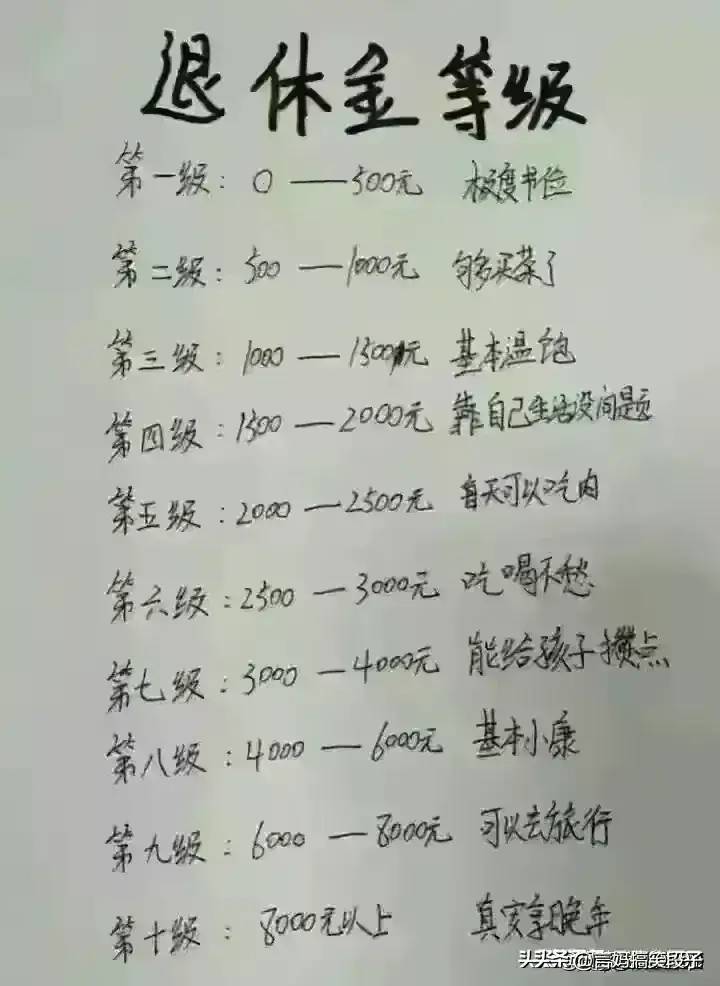 退休金等级
第一级：0——500元 极度节俭
第二级：500——1000元 够买菜了
第三级：1000——1500元 基本温饱
第四级：1500——2000元 靠自己生活没问题
第五级：2000——2500元 每天可以吃肉
第六级：2500——3000元 吃喝不愁
第七级：3000——4000元 能给孩子攒点
第八级：4000——6000元 基本小康
第九级：6000——8000元 可以去旅行
第十级：8000元以上 真实享晚年
头条 @言妈搞笑段子